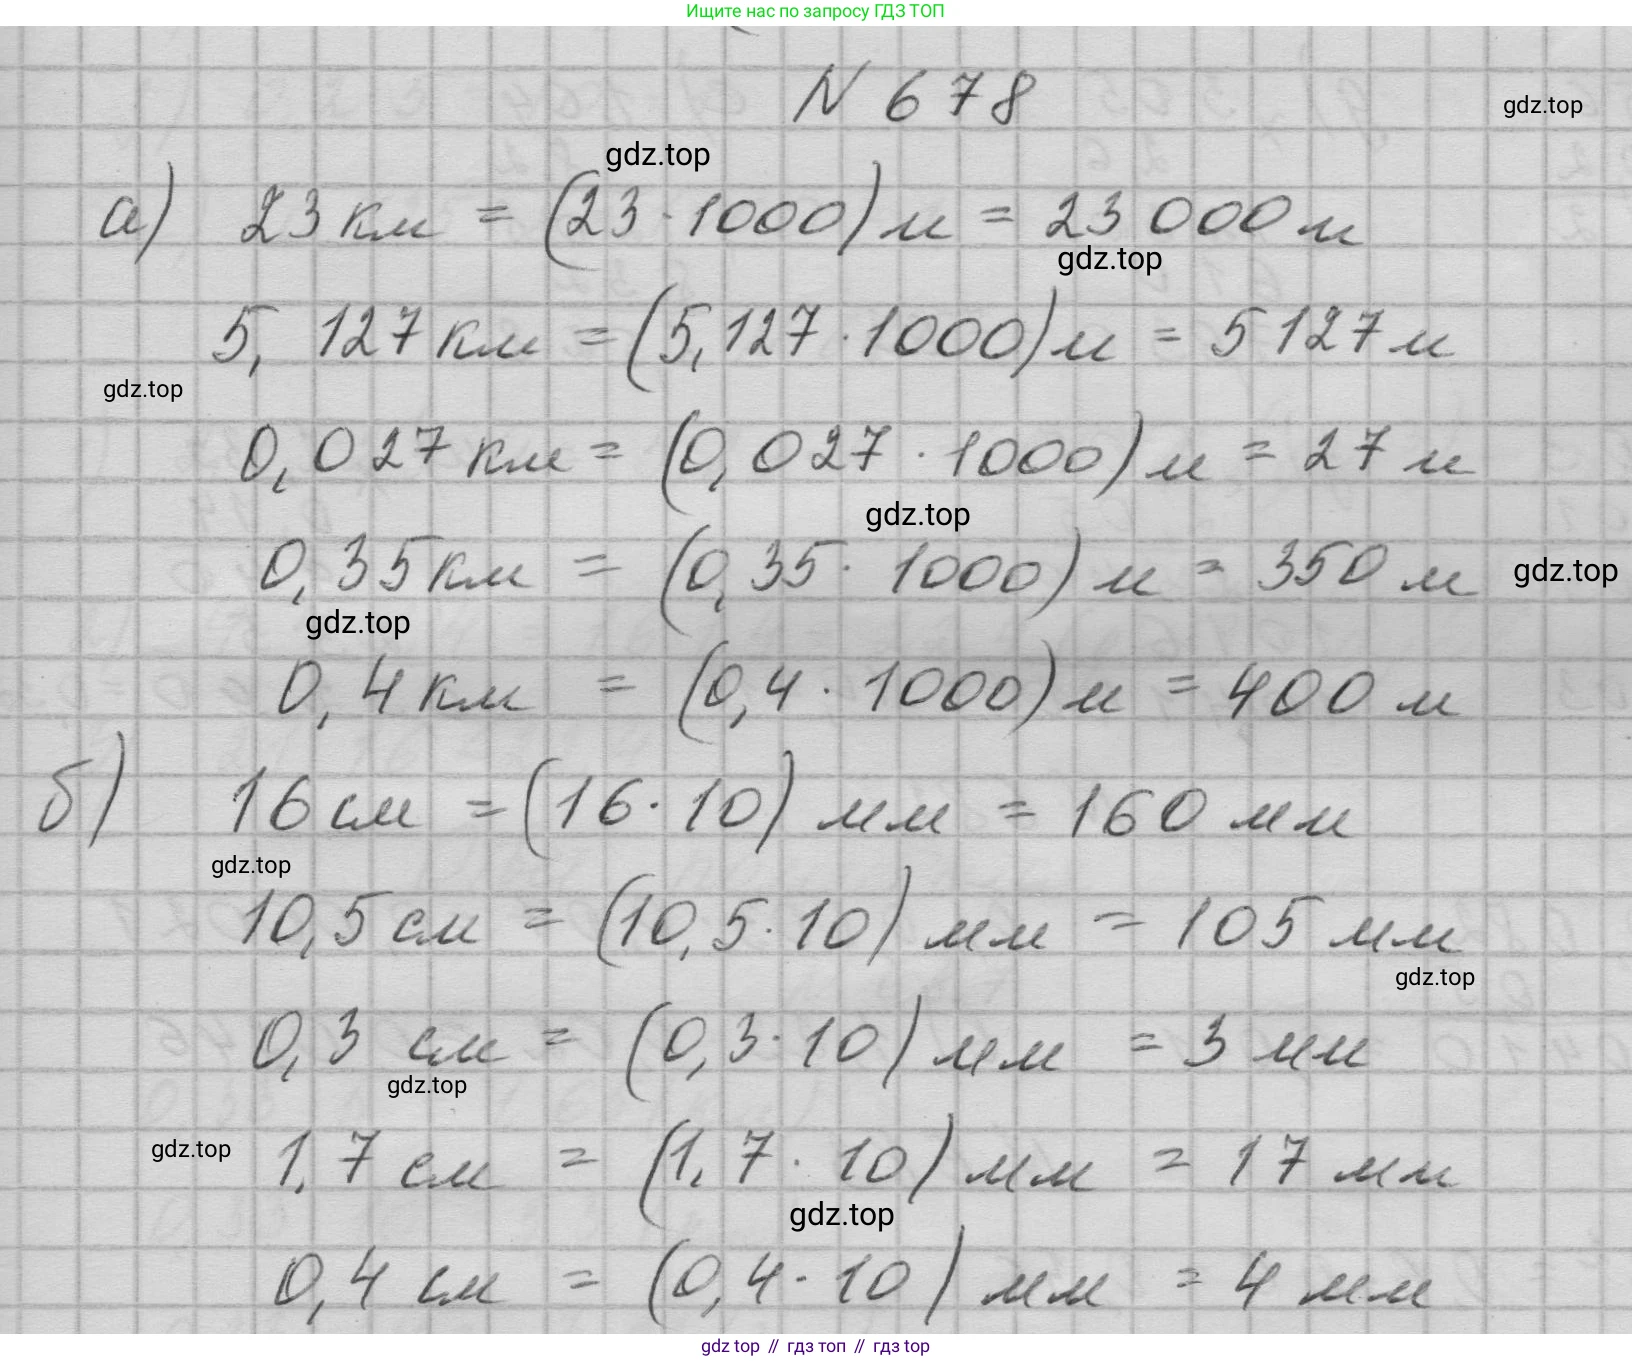 Ищите нас по запросу ГДЗ ТОП
N 678
gdz.top
gdz.top
а) 23 км = (23 · 1000) м = 23 000 м
gdz.top
5, 127 км = (5,127 · 1000) м = 5 127 м
gdz.top
0,027 км = (0,027 · 1000) м = 27 м
gdz.top
0,35 км = (0,35 · 1000) м = 350 м
gdz.top
gdz.top
0,4 км = (0,4 · 1000) м = 400 м
б) 16 см = (16 · 10) мм = 160 мм
gdz.top
10,5 см = (10,5 · 10) мм = 105 мм
gdz.top
0,3 см = (0,3 · 10) мм = 3 мм
gdz.top
gdz.top
1,7 см = (1,7 · 10) мм = 17 мм
gdz.top
0,4 см = (0,4 · 10) мм = 4 мм
gdz top // гдз топ // gdz top